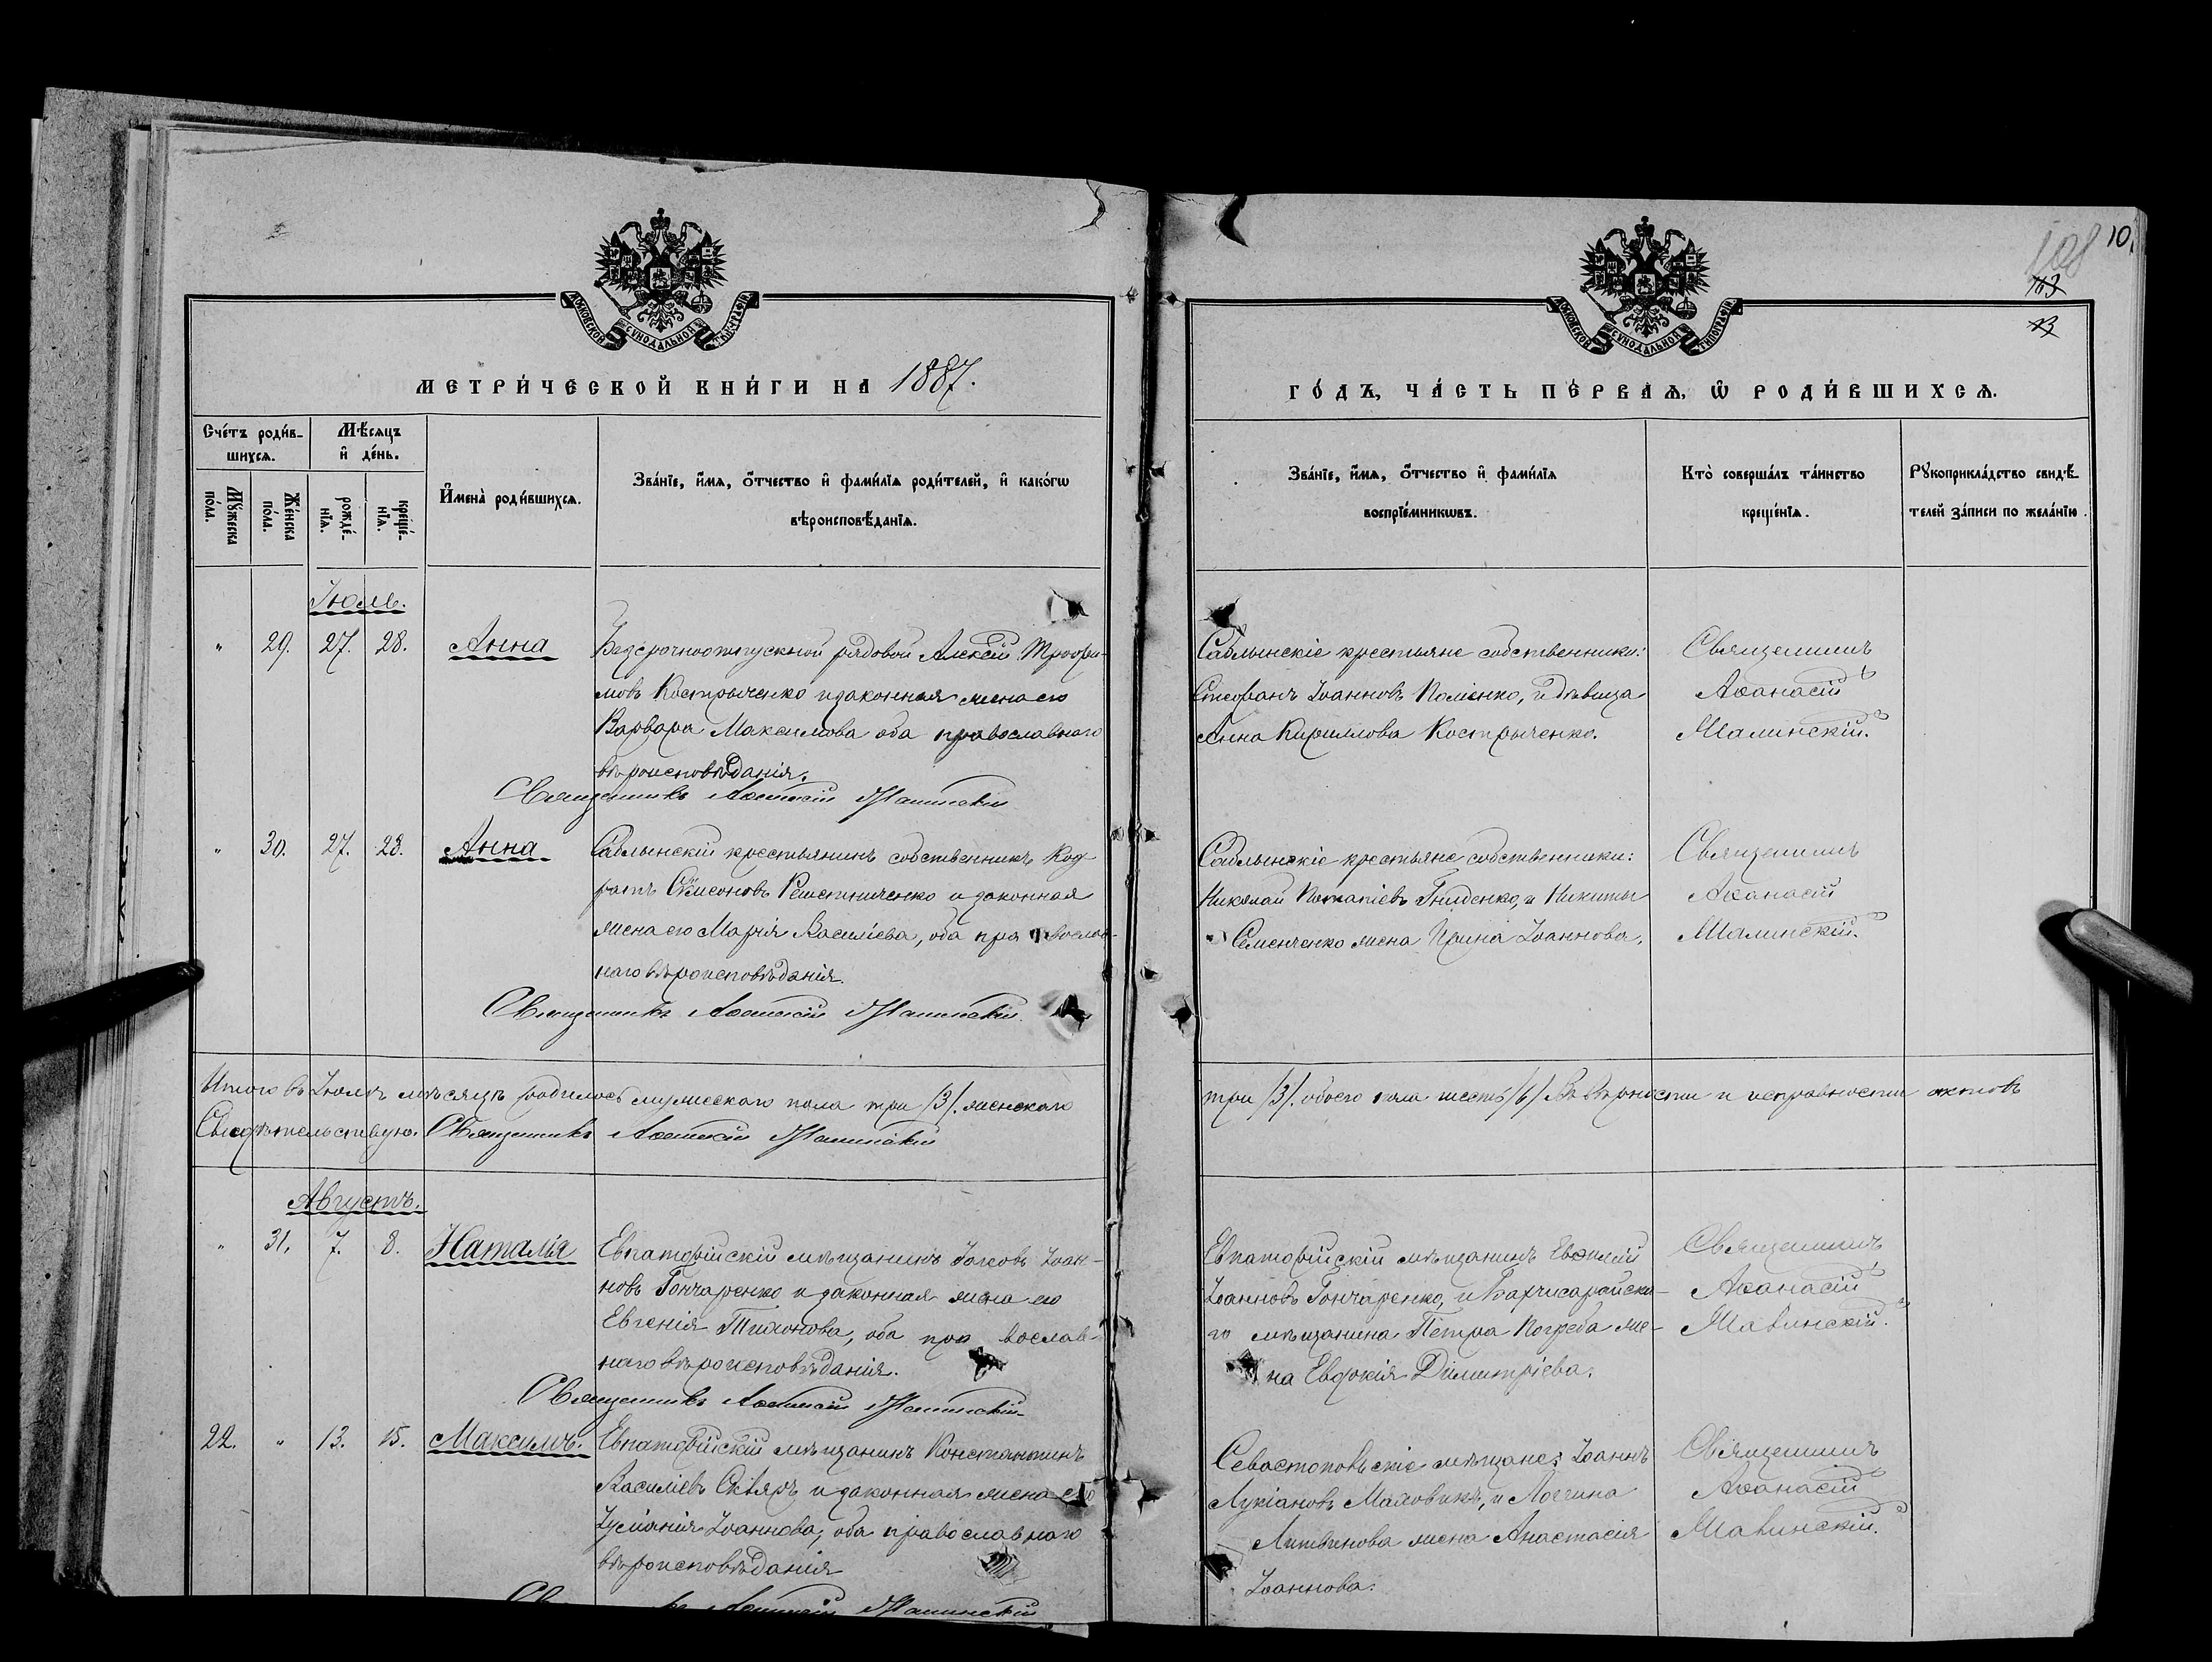 108 10
103
13
МОСКОВСКОЙ СѴНОДАЛЬНОЙ ТИПОГРАФІИ
МОСКОВСКОЙ СѴНОДАЛЬНОЙ ТИПОГРАФІИ
МЕТРИ́ЧЕСКОЙ КНИ́ГИ НА 1887.
ГО́ДЪ, ЧА́СТЬ ПЕ́РВАѦ, Ѡ҆ РОДИ́ВШИХСѦ.
Сче́тъ роди́в-
шихсѧ.
Мꙋ́жеска
по́ла.
Же́нска
по́ла.
Мѣ́сяцъ
и҆ де́нь.
рожде́-
нїѧ.
креще́-
нїѧ.
И҆мена̀ роди́вшихсѧ.
Зва́нїе, и҆́мѧ, ѻ҆́тчество и҆ фами́лїѧ роди́телей, и҆ како́гѡ
вѣроисповѣ́данїѧ.
Зва́нїе, и҆́мѧ, ѻ҆́тчество и҆ фами́лїѧ
воспрїе́мникѡвъ.
Кто̀ соверша́лъ та́инство
креще́нїѧ.
Рꙋкоприкла́дство свидѣ́-
телей за́писи по жела́нїю.
Іюль.
" 29. 27. 28. Анна Безсрочноотпускной рядовой Алексій Трофи-
мовъ Костюченко и законная жена его
Варвара Максимова оба православнаго
вѣроисповѣданія.
Священникъ Аѳанасій Малинскій
Саблынскіе крестьяне собственники:
Стефанъ Іоанновъ Поліенко, и дѣвица
Анна Кириллова Костюченко.
Священникъ
Аѳанасій
Малинскій.
" 30. 27. 28. Анна Саблынскій крестьянинъ собственникъ Код-
ратъ Симеоновъ Решетниченко и законная
жена его Марія Василіева, оба православ-
наго вѣроисповѣданія.
Священникъ Аѳанасій Малинскій.
Саблынскіе крестьяне собственники:
Николай Потапіевъ Гниденко, и Никиты
Семенченко жена Ирина Іоаннова.
Священникъ
Аѳанасій
Малинскій.
Итого въ Іюлѣ мѣсяцѣ родилось мужескаго пола три /3/. женскаго
три /3/. обоего пола шесть /6/ Въ вѣрности и исправности актовъ
Свидѣтельствую. Священникъ Аѳанасій Малинскій
Августъ.
" 31. 7. 8. Наталія Евпаторійскій мѣщанинъ Іаковъ Іоан-
новъ Гончаренко и законная жена его
Евгенія Тихонова, оба православ-
наго вѣроисповѣданія.
Священникъ Аѳанасій Малинскій.
Евпаторійскій мѣщанинъ Евѳимій
Іоанновъ Гончаренко, и Бахчисарайска-
го мѣщанина Петра Погреба же-
на Евдокія Димитріева.
Священникъ
Аѳанасій
Малинскій.
22. " 13. 15. Максимъ. Евпаторійскій мѣщанинъ Константинъ
Василіевъ Скляръ и законная жена его
Іуліанія Іоаннова, оба православнаго
вѣроисповѣданія
Аѳанасій Малинскій
Севастопольскіе мѣщане: Іоаннъ
Лукіановъ Маховикъ, и Логгина
Литвинова жена Анастасія
Іоаннова.
Священникъ
Аѳанасій
Малинскій.